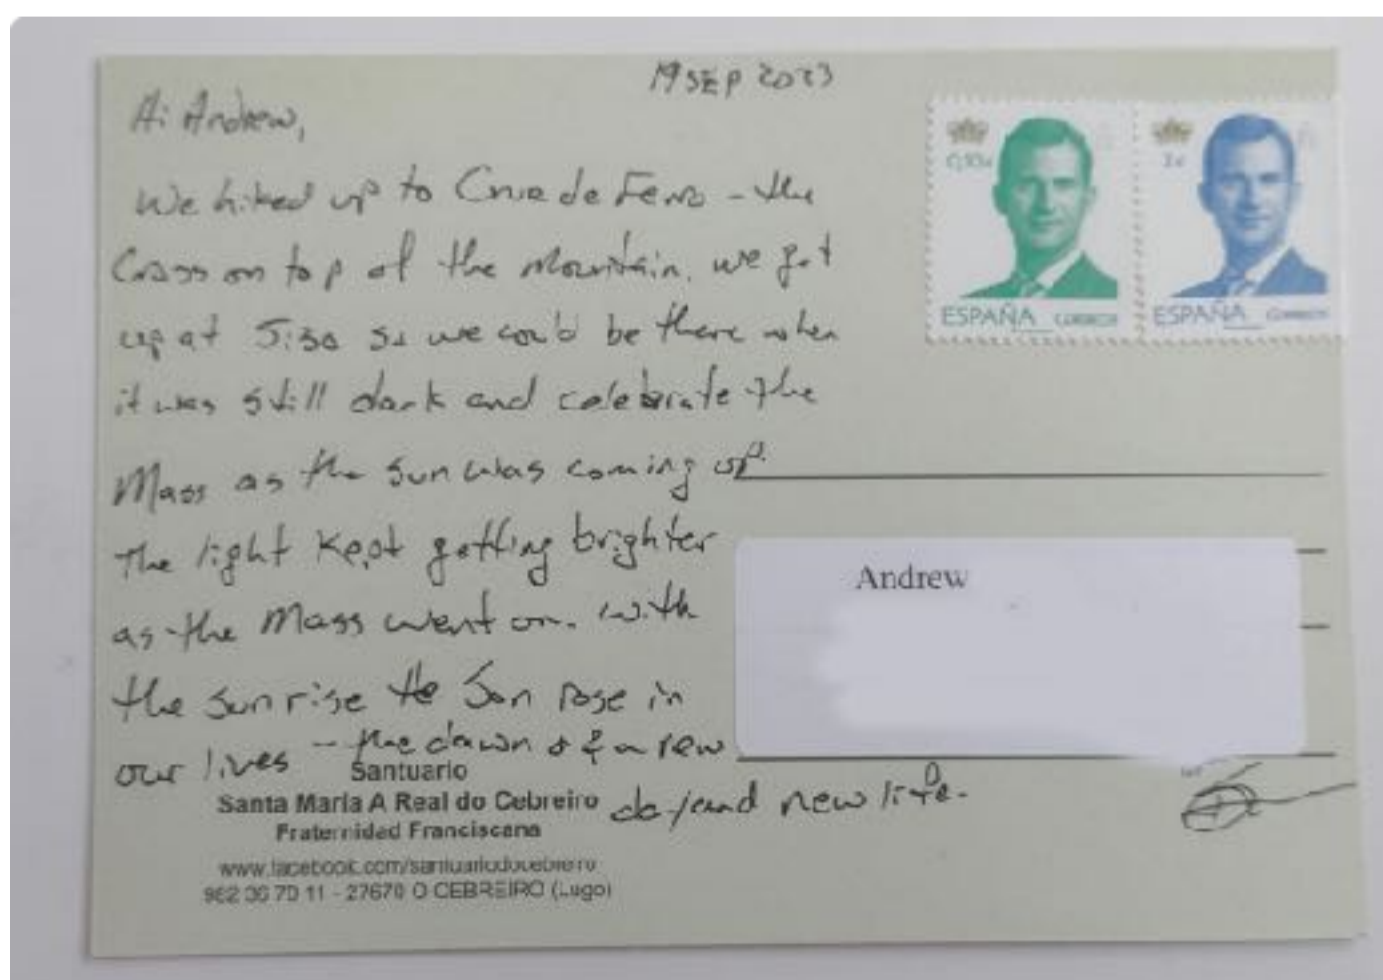 19 SEP 2023
Hi Andrew,
We hiked up to Cruz de Ferro - the
Cross on top of the mountain. we got
up at 5:30 so we could be there when
it was still dark and celebrate the
Mass as the sun was coming up.
The light kept getting brighter
as the Mass went on. with
the sunrise the Son rose in
our lives - the dawn of a new
day and new life.
ESPAÑA CORREOS
1€
ESPAÑA CORREOS
Andrew
Santuario
Santa Maria A Real do Cebreiro
Fraternidad Franciscana
www.facebook.com/santuariodocebreiro
982 36 70 11 - 27670 O CEBREIRO (Lugo)